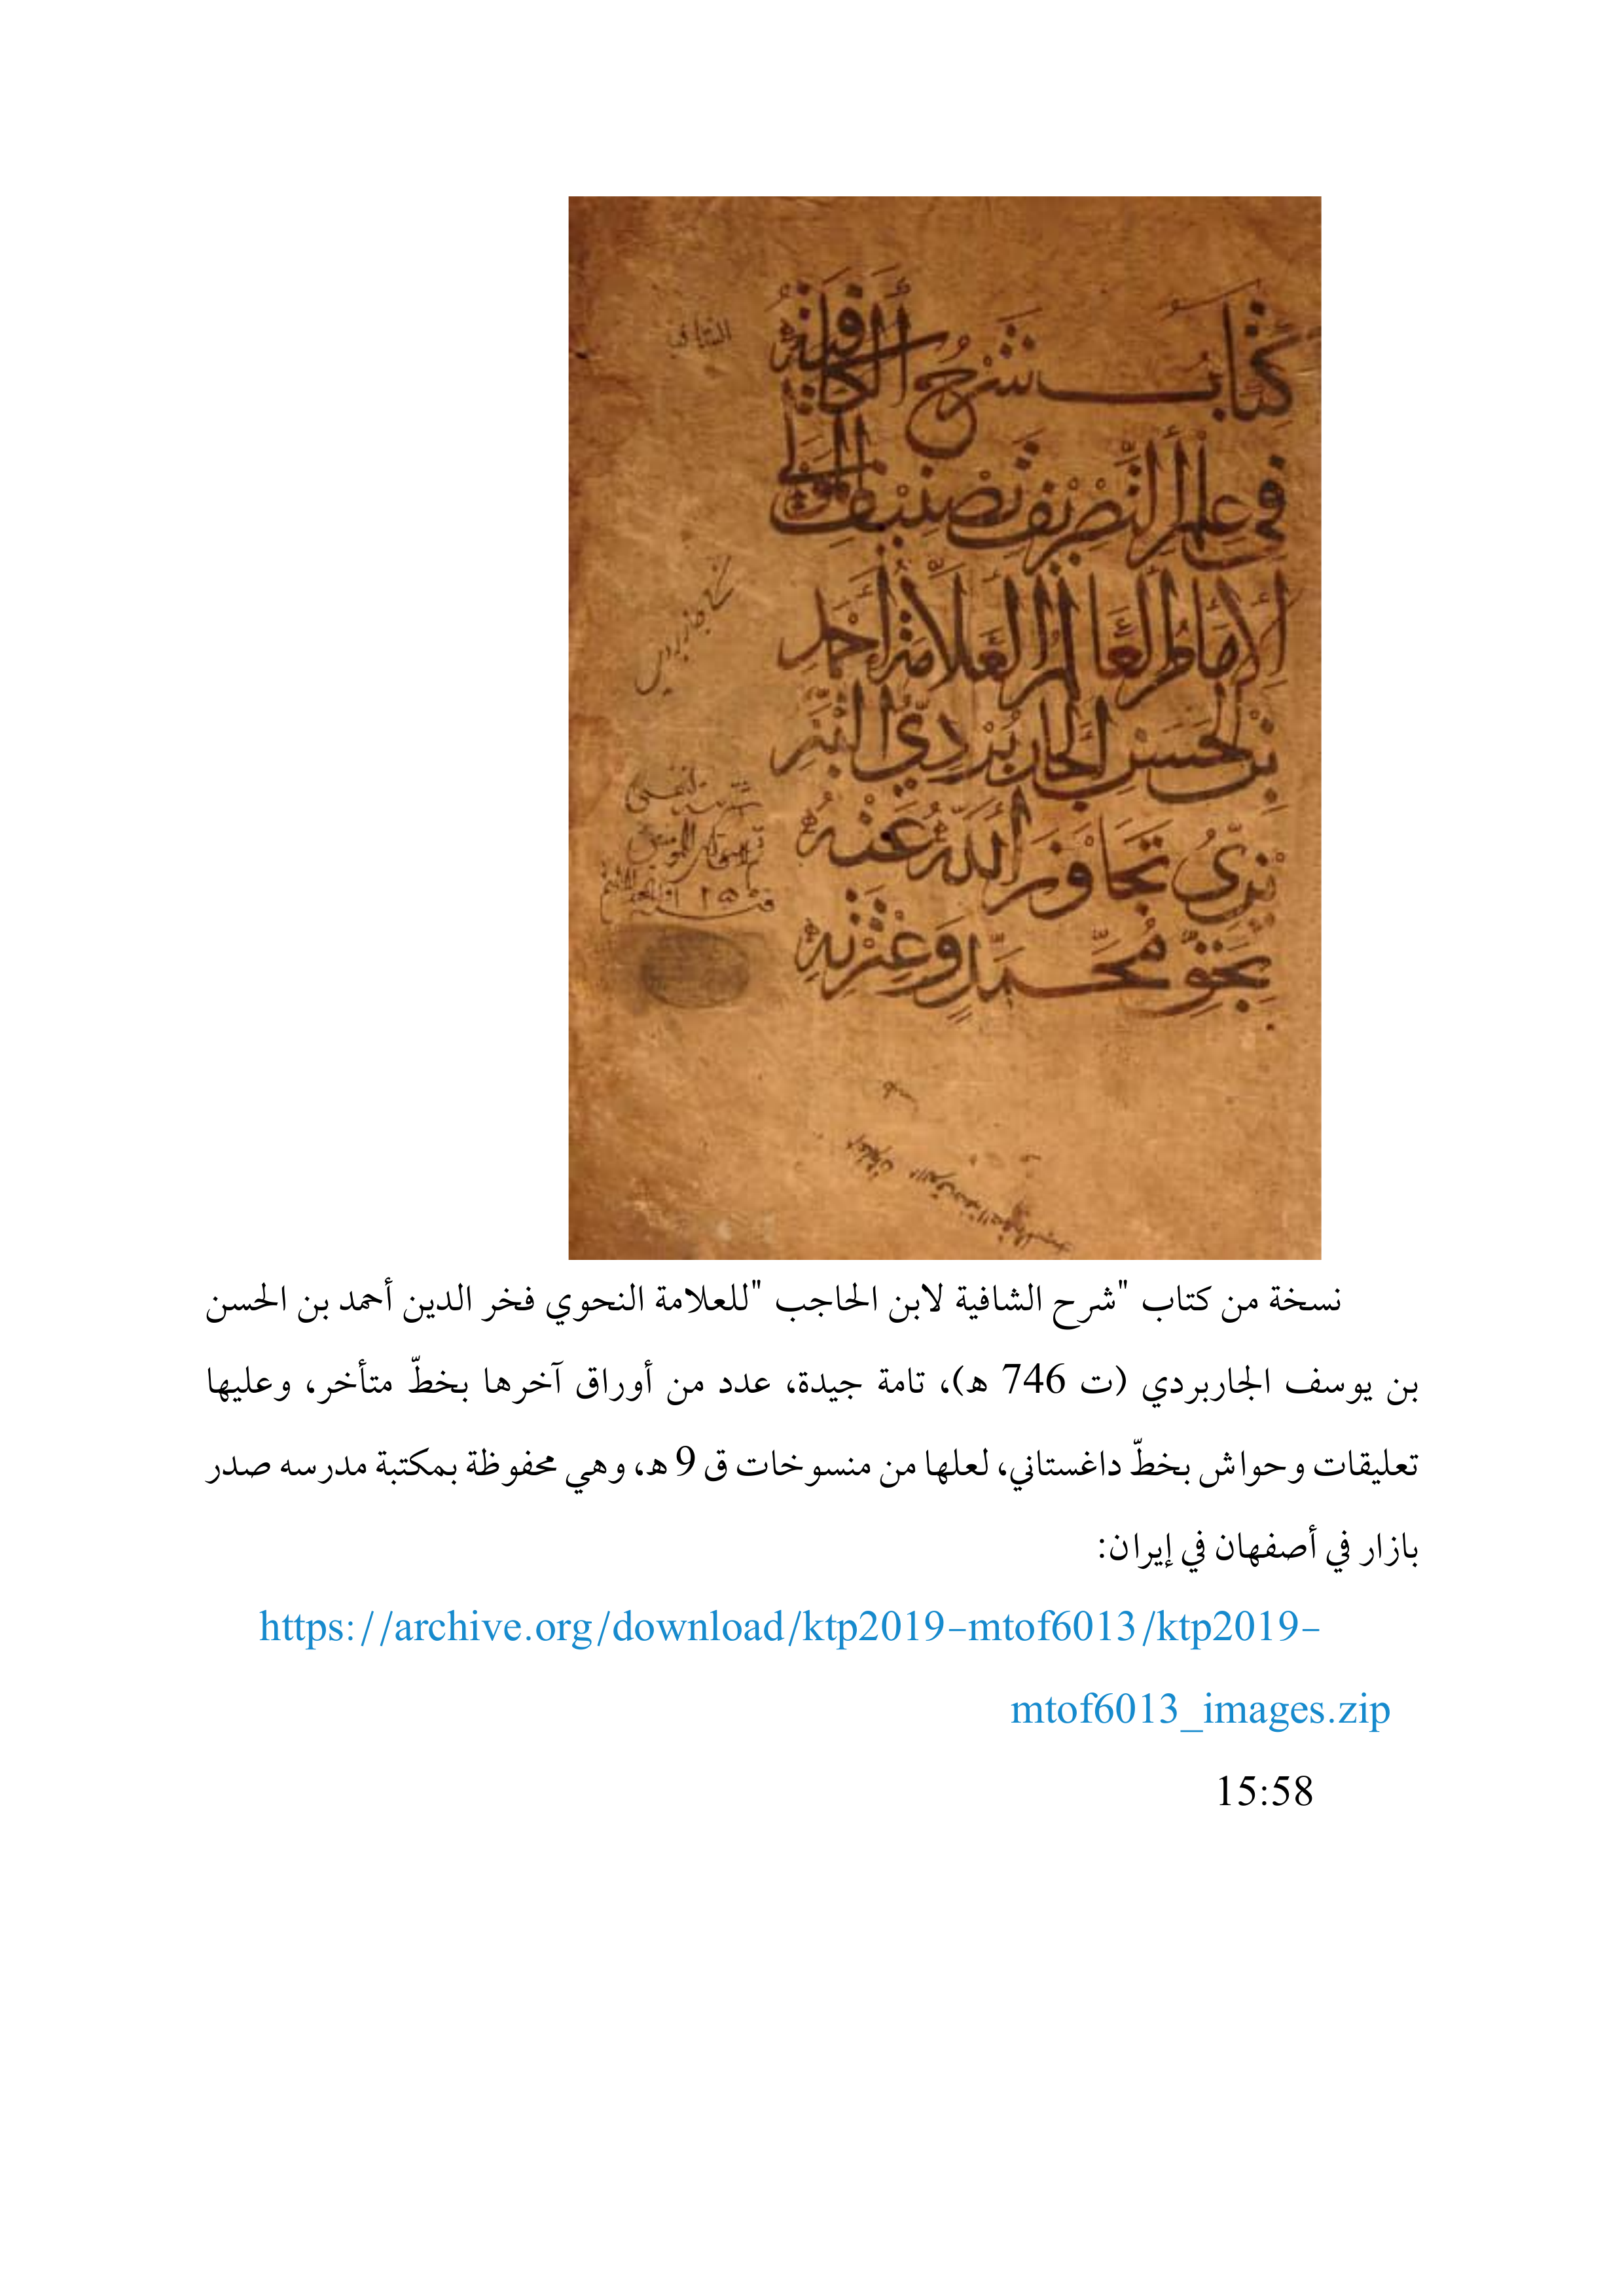 كتاب شرح الكافية
في علم التصريف تصنيف المولى
الإمام العالم العلامة أحمد
بن الحسن الجاربردي التبر
يزي تجاوز الله عنه
بحق محمد وعترته
نسخة من كتاب "شرح الشافية لابن الحاجب "للعلامة النحوي فخر الدين أحمد بن الحسن
بن يوسف الجاربردي (ت 746 هـ)، تامة جيدة، عدد من أوراق آخرها بخطّ متأخر، وعليها
تعليقات وحواش بخطّ داغستاني، لعلها من منسوخات ق 9 هـ، وهي محفوظة بمكتبة مدرسه صدر
بازار في أصفهان في إيران:
https://archive.org/download/ktp2019-mtof6013/ktp2019-
mtof6013_images.zip
15:58